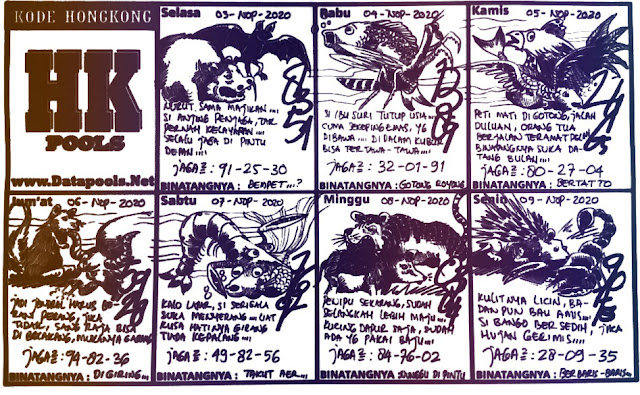 KODE HONGKONG
HK
POOLS
www.Datapools.Net
Selasa 03-NOP-2020
NURUT SAMA MAJIKAN...
SI ANJING PENJAGA, TAK
PERNAH KELAPARAN...
SELALU JAGA DI PINTU
DEPAN...
JAGA²: 91-25-30
BINATANGNYA: DEMPET...?
Rabu 04-NOP-2020
SI IBU SURI TUTUP USIA...
CUMA SEKEPING EMAS, YG
DIBAWA... DI DALAM KUBUR
BISA TERTAWA-TAWA...
JAGA²: 32-01-91
BINATANGNYA: GOTONG ROYONG
Kamis 05-NOP-2020
PETI MATI DI GOTONG, JALAN
DULUAN, ORANG TUA
BERJALAN TERAMAT
BINATANGNYA SUKA DA-
TANG BULAN...
JAGA²: 80-27-04
BINATANGNYA: BERTATTO
Jum'at 06-NOP-2020
JADI HARUS BE-
RANI PERANG, JIKA
TIDAK, SANG RAJA BISA
DI BELAKANG, MUKANYA GARANG
JAGA²: 94-82-36
BINATANGNYA: DI GIRING...
Sabtu 07-NOP-2020
KALO LAPAR, SI SERIGALA
SUKA MENYERANG... LIAT
RUSA HATINYA GIRANG
TIADA KEPALANG...
JAGA²: 49-82-56
BINATANGNYA: TAKUT AER...
Minggu 08-NOP-2020
SEKARANG, SUDAH
SELANGKAH LEBIH MAJU...
KUCING DAPUR SAJA, SUDAH
ADA YG PAKAI BAJU...
JAGA²: 84-76-02
BINATANGNYA: TUNGGU DI PINTU
Senin 09-NOP-2020
KULITNYA LICIN, BA-
DAN PUN BAU AMIS...
SI BANGO BERSEDIH, JIKA
HUJAN GERIMIS....
JAGA²: 28-09-35
BINATANGNYA: BERBARIS-BARIS...